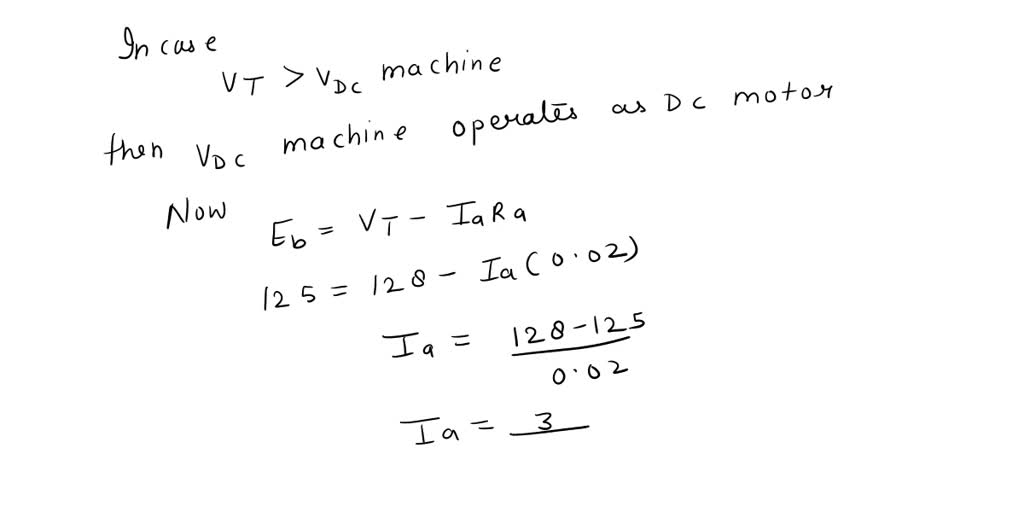 In case
VT > VDC machine
then VDC machine operates as DC motor
Now
Eb = VT - IaRa
125 = 128 - Ia(0.02)
Ia = 128-125
0.02
Ia = 3